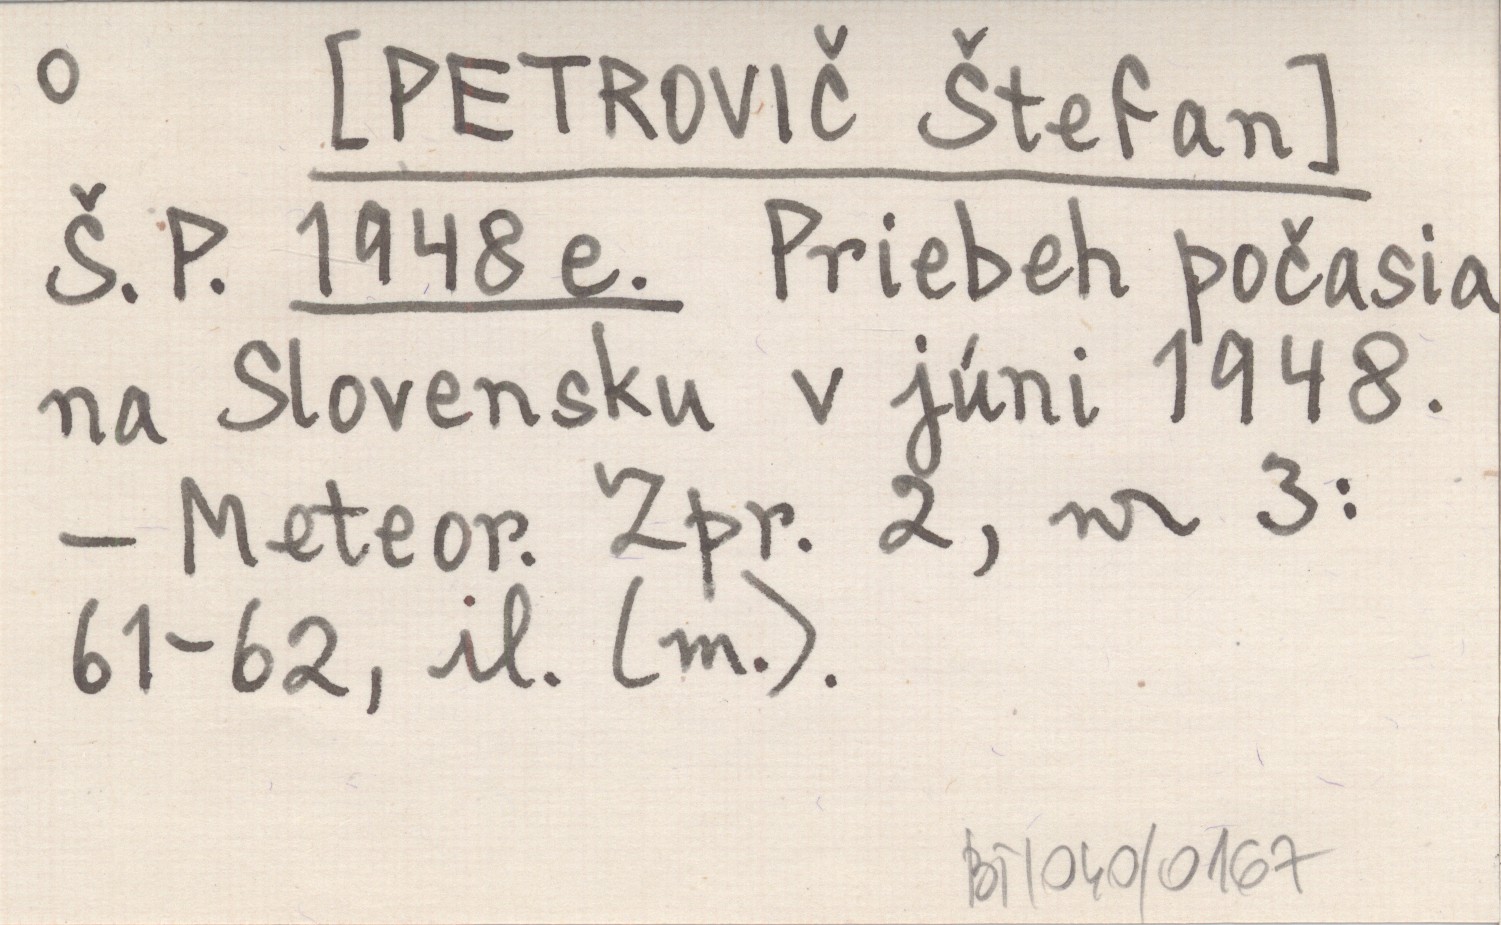 o [PETROVIČ Štefan]
Š.P. 1948 e. Priebeh počasia
na Slovensku v júni 1948.
— Meteor. Zpr. 2, nr 3:
61-62, il. (m.).
BT/040/0167